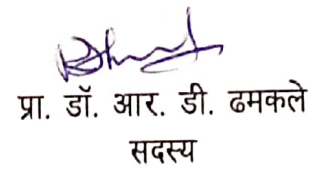 प्रा. डॉ. आर. डी. ढमकले
सदस्य